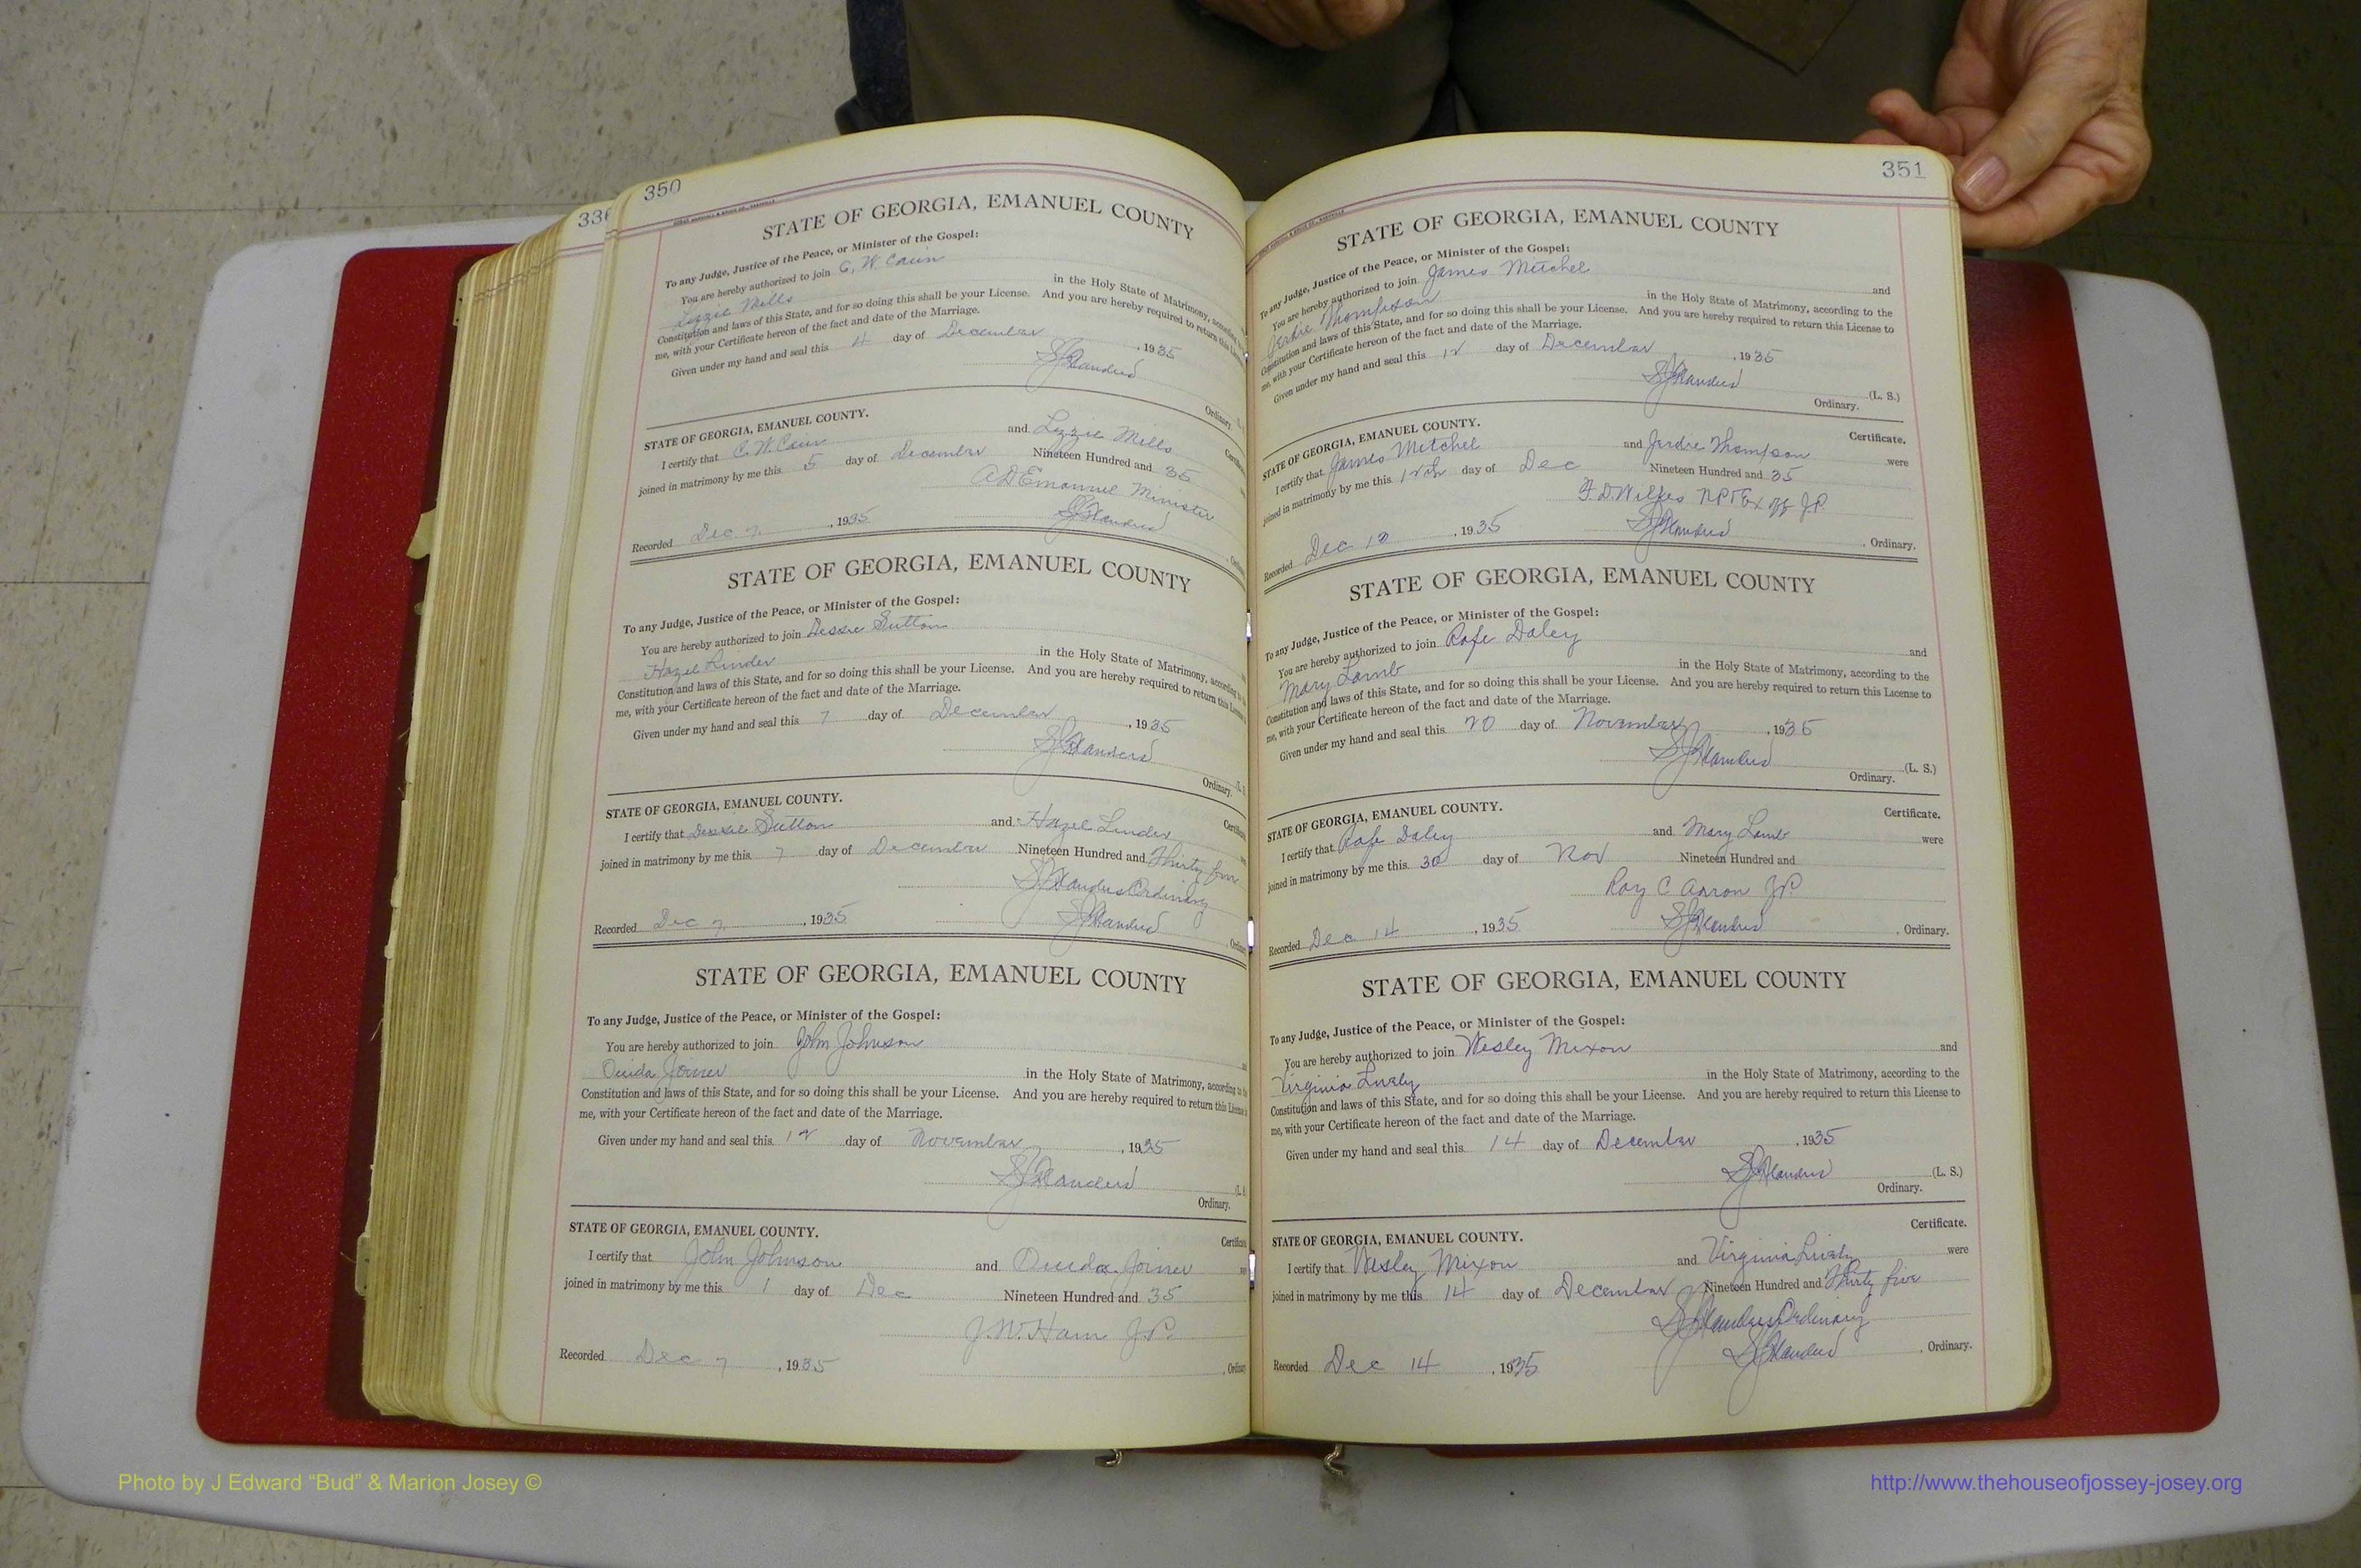 350
STATE OF GEORGIA, EMANUEL COUNTY
To any Judge, Justice of the Peace, or Minister of the Gospel:
You are hereby authorized to join C. W. Cain
Lizzie Mills in the Holy State of Matrimony, according
Constitution and laws of this State, and for so doing this shall be your License. And you are hereby required to return this
me, with your Certificate hereon of the fact and date of the Marriage.
Given under my hand and seal this 4 day of December, 1935
Ordinary.
STATE OF GEORGIA, EMANUEL COUNTY.
I certify that C. W. Cain and Lizzie Mills
joined in matrimony by me this 5 day of December Nineteen Hundred and 35
A D Emanuel Minister
Recorded Dec 7, 1935
STATE OF GEORGIA, EMANUEL COUNTY
To any Judge, Justice of the Peace, or Minister of the Gospel:
You are hereby authorized to join Dessie Sutton
Hazel Linder in the Holy State of Matrimony, according to
Constitution and laws of this State, and for so doing this shall be your License. And you are hereby required to return this License
me, with your Certificate hereon of the fact and date of the Marriage.
Given under my hand and seal this 7 day of December, 1935
Ordinary.
STATE OF GEORGIA, EMANUEL COUNTY.
I certify that Dessie Sutton and Hazel Linder
joined in matrimony by me this 7 day of December Nineteen Hundred and Thirty five
Ordinary
Recorded Dec 7, 1935
STATE OF GEORGIA, EMANUEL COUNTY
To any Judge, Justice of the Peace, or Minister of the Gospel:
You are hereby authorized to join John Johnson
Ouida Joiner in the Holy State of Matrimony, according to the
Constitution and laws of this State, and for so doing this shall be your License. And you are hereby required to return this License
me, with your Certificate hereon of the fact and date of the Marriage.
Given under my hand and seal this 12 day of November, 1935
Ordinary.
STATE OF GEORGIA, EMANUEL COUNTY.
I certify that John Johnson and Ouida Joiner
joined in matrimony by me this 1 day of Dec Nineteen Hundred and 35
J. W. Ham J.P.
Recorded Dec 7, 1935
351
STATE OF GEORGIA, EMANUEL COUNTY
To any Judge, Justice of the Peace, or Minister of the Gospel:
You are hereby authorized to join James Mitchel and
Jerdie Thompson in the Holy State of Matrimony, according to the
Constitution and laws of this State, and for so doing this shall be your License. And you are hereby required to return this License to
me, with your Certificate hereon of the fact and date of the Marriage.
Given under my hand and seal this 12 day of December, 1935
(L. S.)
Ordinary.
STATE OF GEORGIA, EMANUEL COUNTY. Certificate.
I certify that James Mitchel and Jerdie Thompson were
joined in matrimony by me this 12th day of Dec Nineteen Hundred and 35
J.P.
Recorded Dec 12, 1935 Ordinary.
STATE OF GEORGIA, EMANUEL COUNTY
To any Judge, Justice of the Peace, or Minister of the Gospel:
You are hereby authorized to join Rafe Daley and
Mary Lamb in the Holy State of Matrimony, according to the
Constitution and laws of this State, and for so doing this shall be your License. And you are hereby required to return this License to
me, with your Certificate hereon of the fact and date of the Marriage.
Given under my hand and seal this 20 day of November, 1935
(L. S.)
Ordinary.
STATE OF GEORGIA, EMANUEL COUNTY. Certificate.
I certify that Rafe Daley and Mary Lamb were
joined in matrimony by me this 30 day of Nov Nineteen Hundred and
Roy C Aaron J.P.
Recorded Dec 14, 1935, Ordinary.
STATE OF GEORGIA, EMANUEL COUNTY
To any Judge, Justice of the Peace, or Minister of the Gospel:
You are hereby authorized to join Wesley Mixon and
Virginia Lively in the Holy State of Matrimony, according to the
Constitution and laws of this State, and for so doing this shall be your License. And you are hereby required to return this License to
me, with your Certificate hereon of the fact and date of the Marriage.
Given under my hand and seal this 14 day of December, 1935
(L. S.)
Ordinary.
STATE OF GEORGIA, EMANUEL COUNTY. Certificate.
I certify that Wesley Mixon and Virginia Lively were
joined in matrimony by me this 14 day of December Nineteen Hundred and Thirty five
Ordinary
Recorded Dec 14, 1935, Ordinary.
Photo by J Edward “Bud” & Marion Josey ©
http://www.thehouseofjossey-josey.org